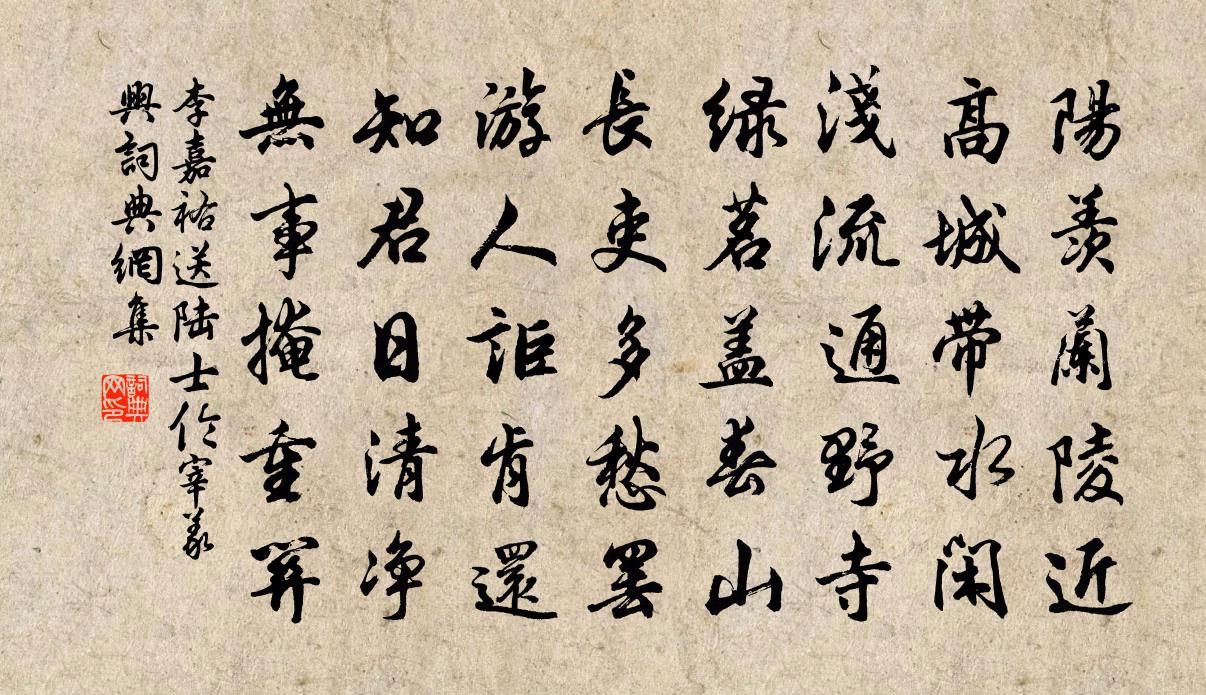 陽羨蘭陵近
高城帶水閑
淺流通野寺
緑茗蓋春山
長吏多愁罷
游人詎肯還
知君日清淨
無事掩重關
李嘉祐送陸士伦宰義
興詞典網集
詞典网印